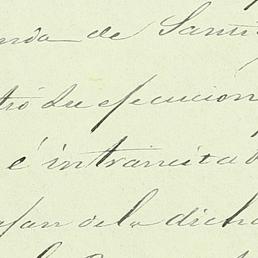 nda de Santi
tró su ejecución
é intransitab
afan del a dicho